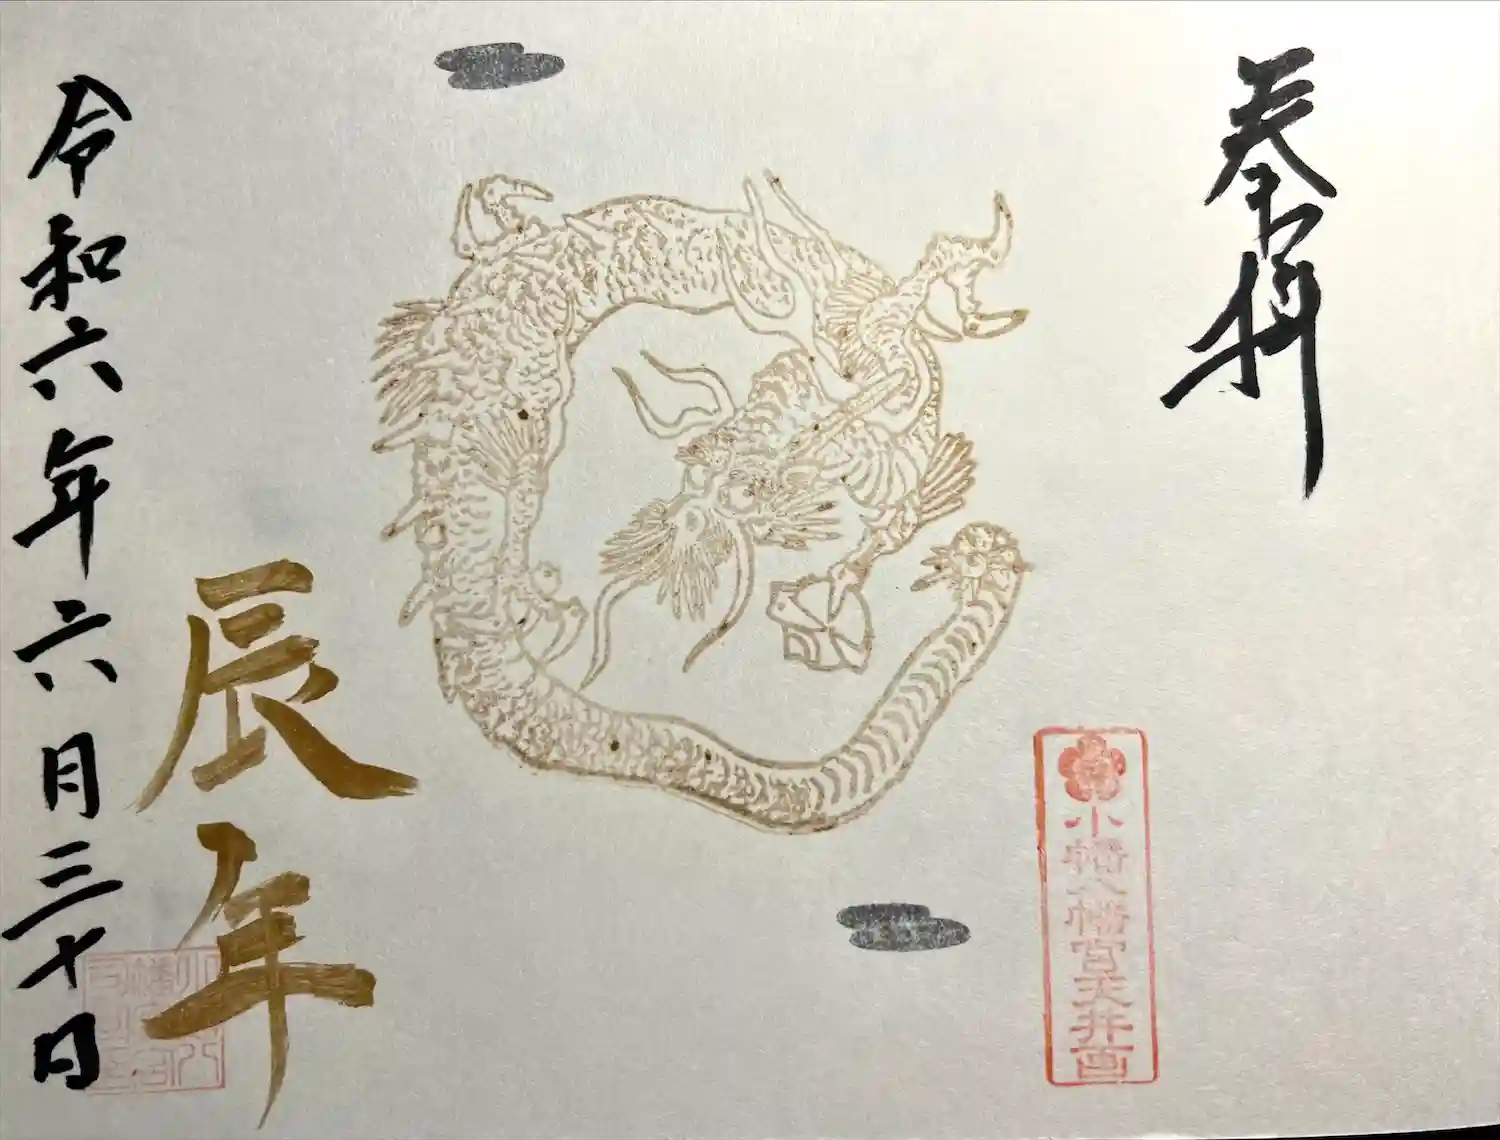 奉拝
小幡八幡宮天井画
辰年
令和六年六月三十日